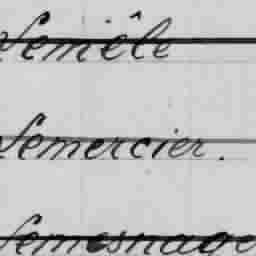 Lemêle
Lemercier.
Lemesnage